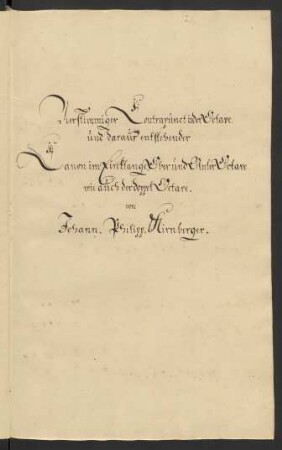 Vierstimmiger Contrapunct in der Octave
und daraus entstehender
Canon im Einklange Ober und Unter Octave
wie auch der doppel Octave.
von
Johann. Philipp. Kirnberger.